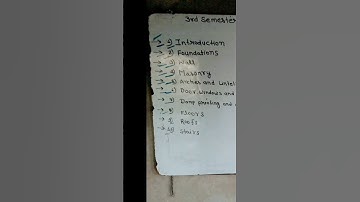 3rd Semester
→ 1) Introduction
→ 2) Foundations
→ 3) Wall
→ 4) Masonry
→ 5) Arches and Lintel
→ 6) Door, Windows and
→ 7) Damp proofing and
→ 8) Floors
→ 9) Roofs
→ 10) Stairs